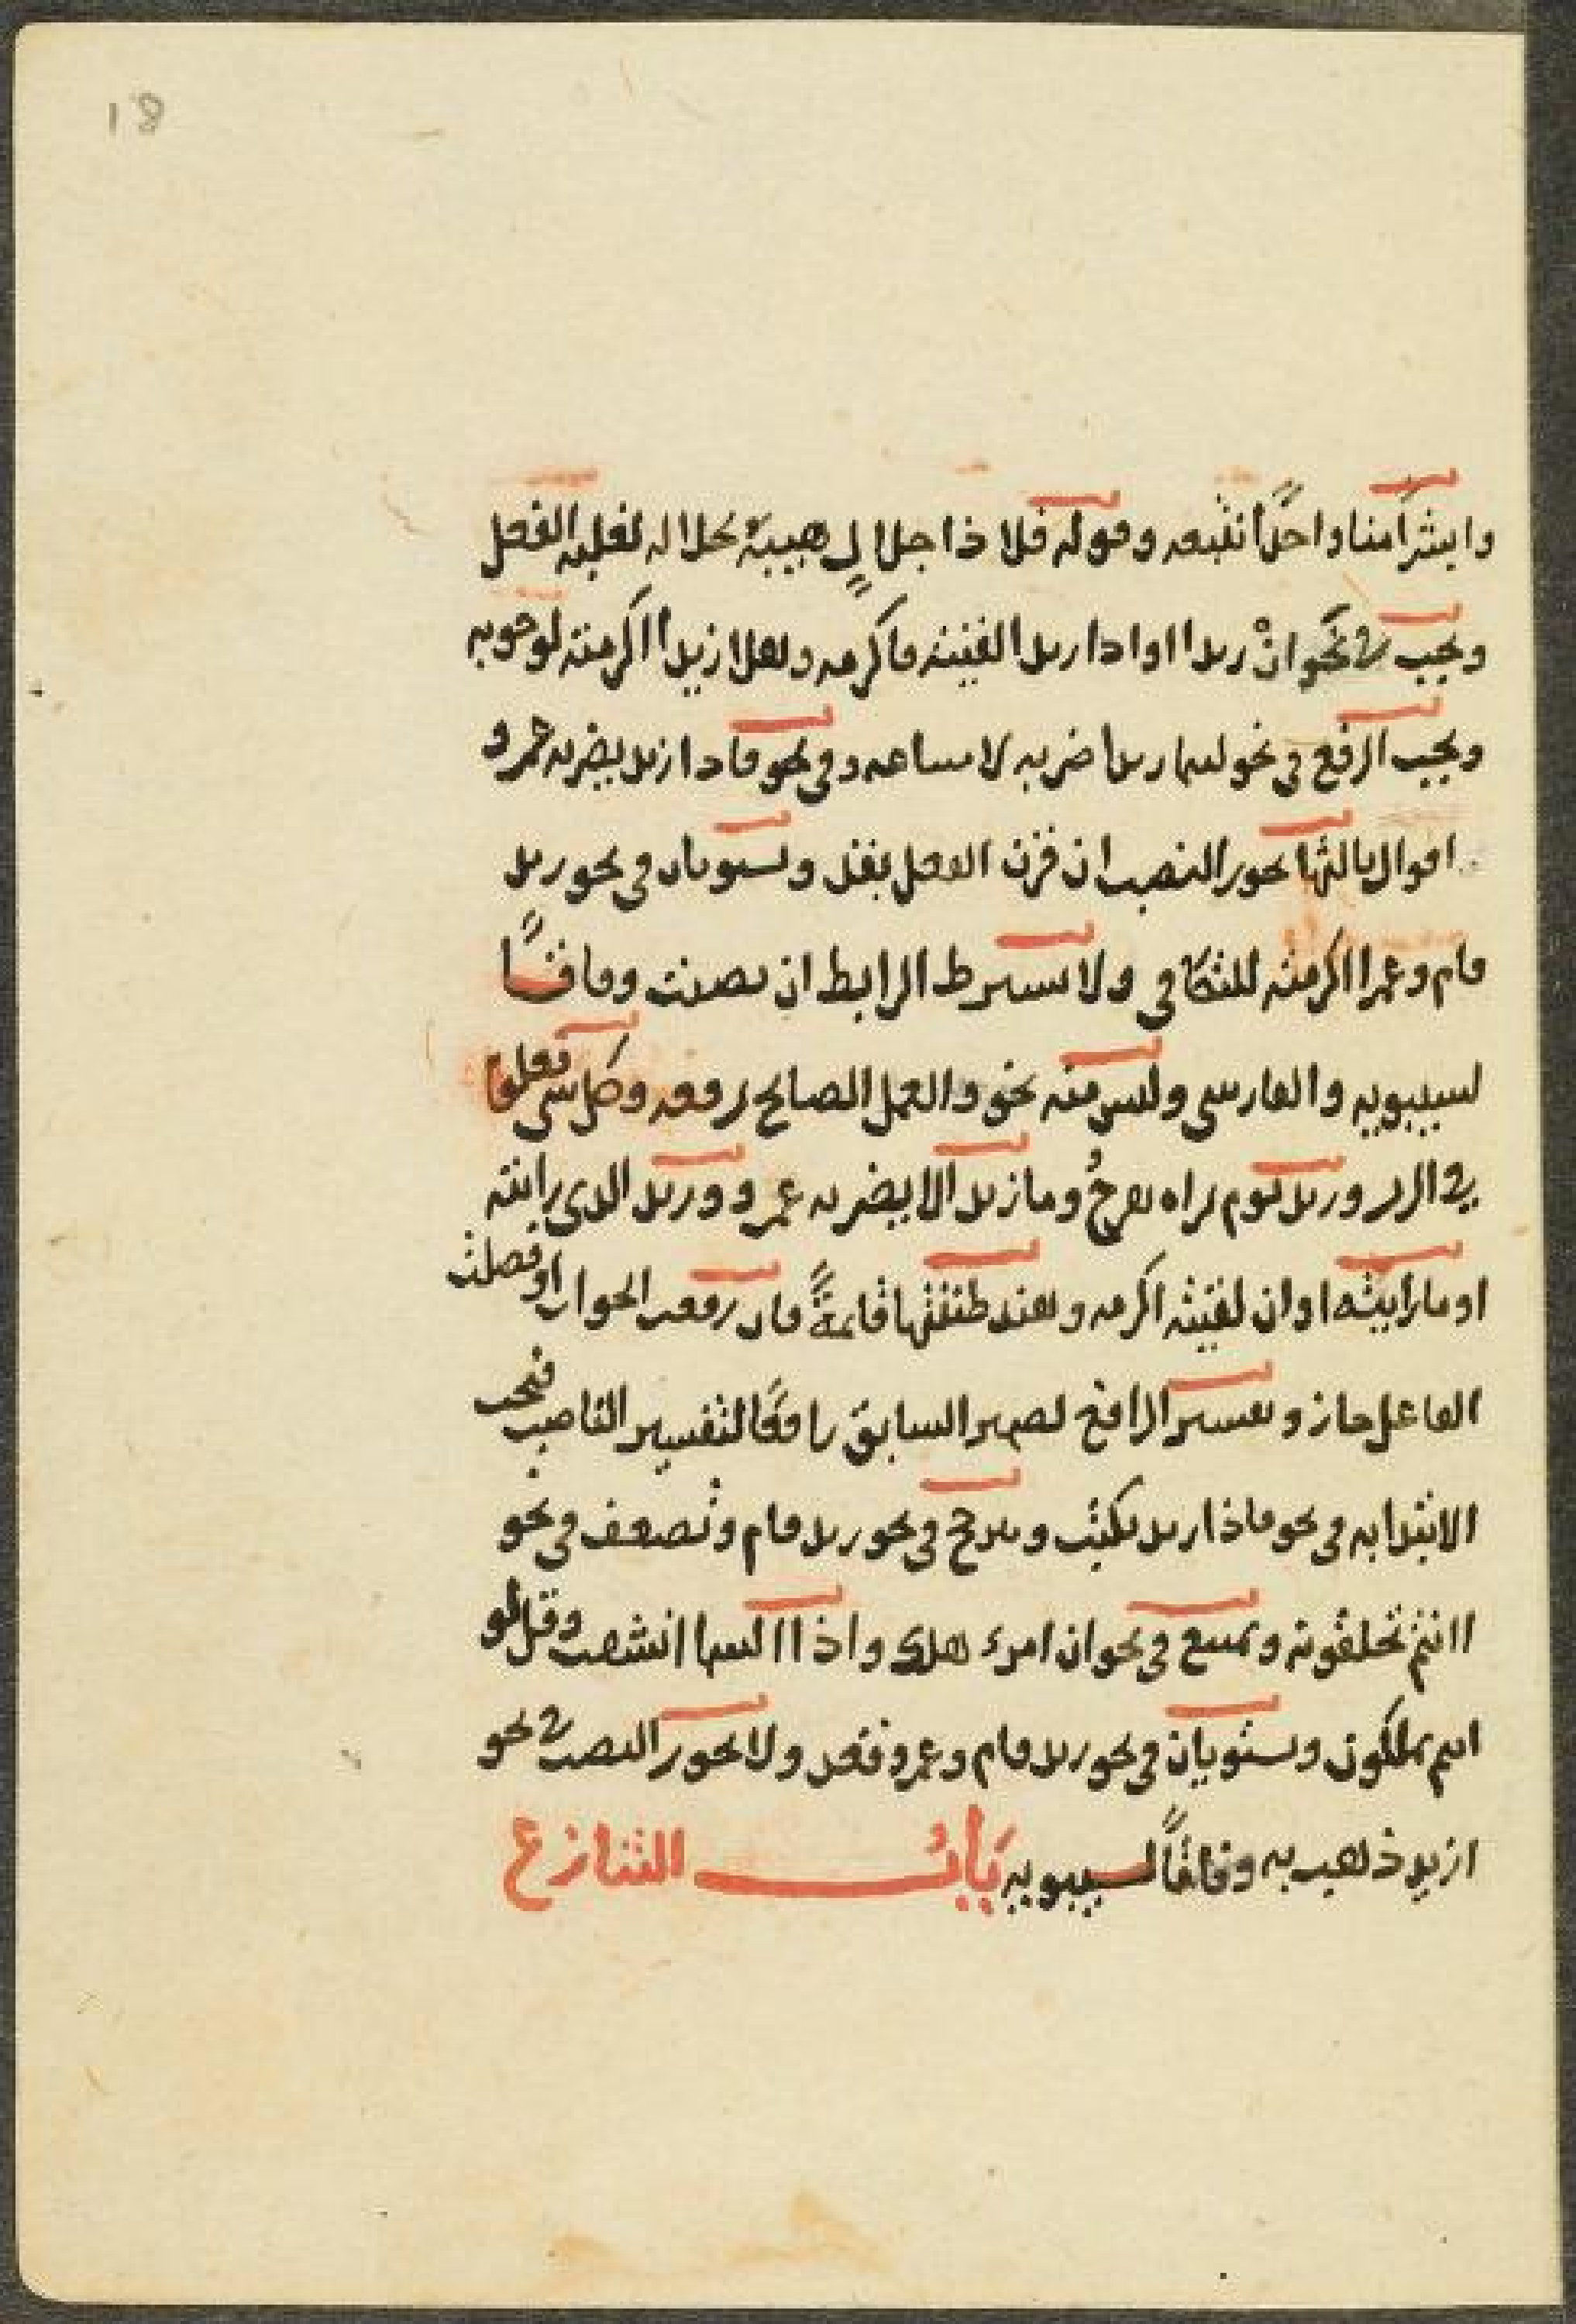 18
وابشرا منا واحدًا نتبعه وقوله فلا ذا جلالٍ هبنه لجلاله لغلبه الفعل
ويجب في نحو انْ زيدا او اذا زيدا لقيته فاكرمه وهلا زيدا اكرمته لوجوبه
ويجب الرفع في نحو ليتما زيدا ضربه لامتناعه وفي نحو فاذا زيد يضربه عمرو
اقوال ثالثها يجوز النصب ان قرن الفعل بقد ويستويان في نحو زيد
قام وعمرا اكرمته للتكافي ولا يشترط الرابط ان نصبت وفاقًا
لسيبويه والفارسي وليس منه نحو والعمل الصالح يرفعه وكل شي فعلوه
في الزبر وزيد يوم تراه تفرحُ وما زيد الا يضربه عمرو وزيد الذي رايته
او ما رايته او ان لقيته اكرمه وهند ظننتها قايمةً فان رفعت الجواب او فصلت
الفاعل جاز وتفسير الرافع لضمير السابق رافعًا كتفسير الناصب فيجب
الابتدا به في نحو فاذا زيد يكتب ويترجح في نحو زيد قام ويضعف في نحو
اانتم تخلقونه ويمتنع في نحو ان امرء هلك واذا السما انشقت وقل لو
انتم تملكون ويستويان في نحو زيد قام وعمرو قعد ولا يجوز النصب في نحو
ازيد ذهب به وفاقًا لسيبويه بَابُ التنازع